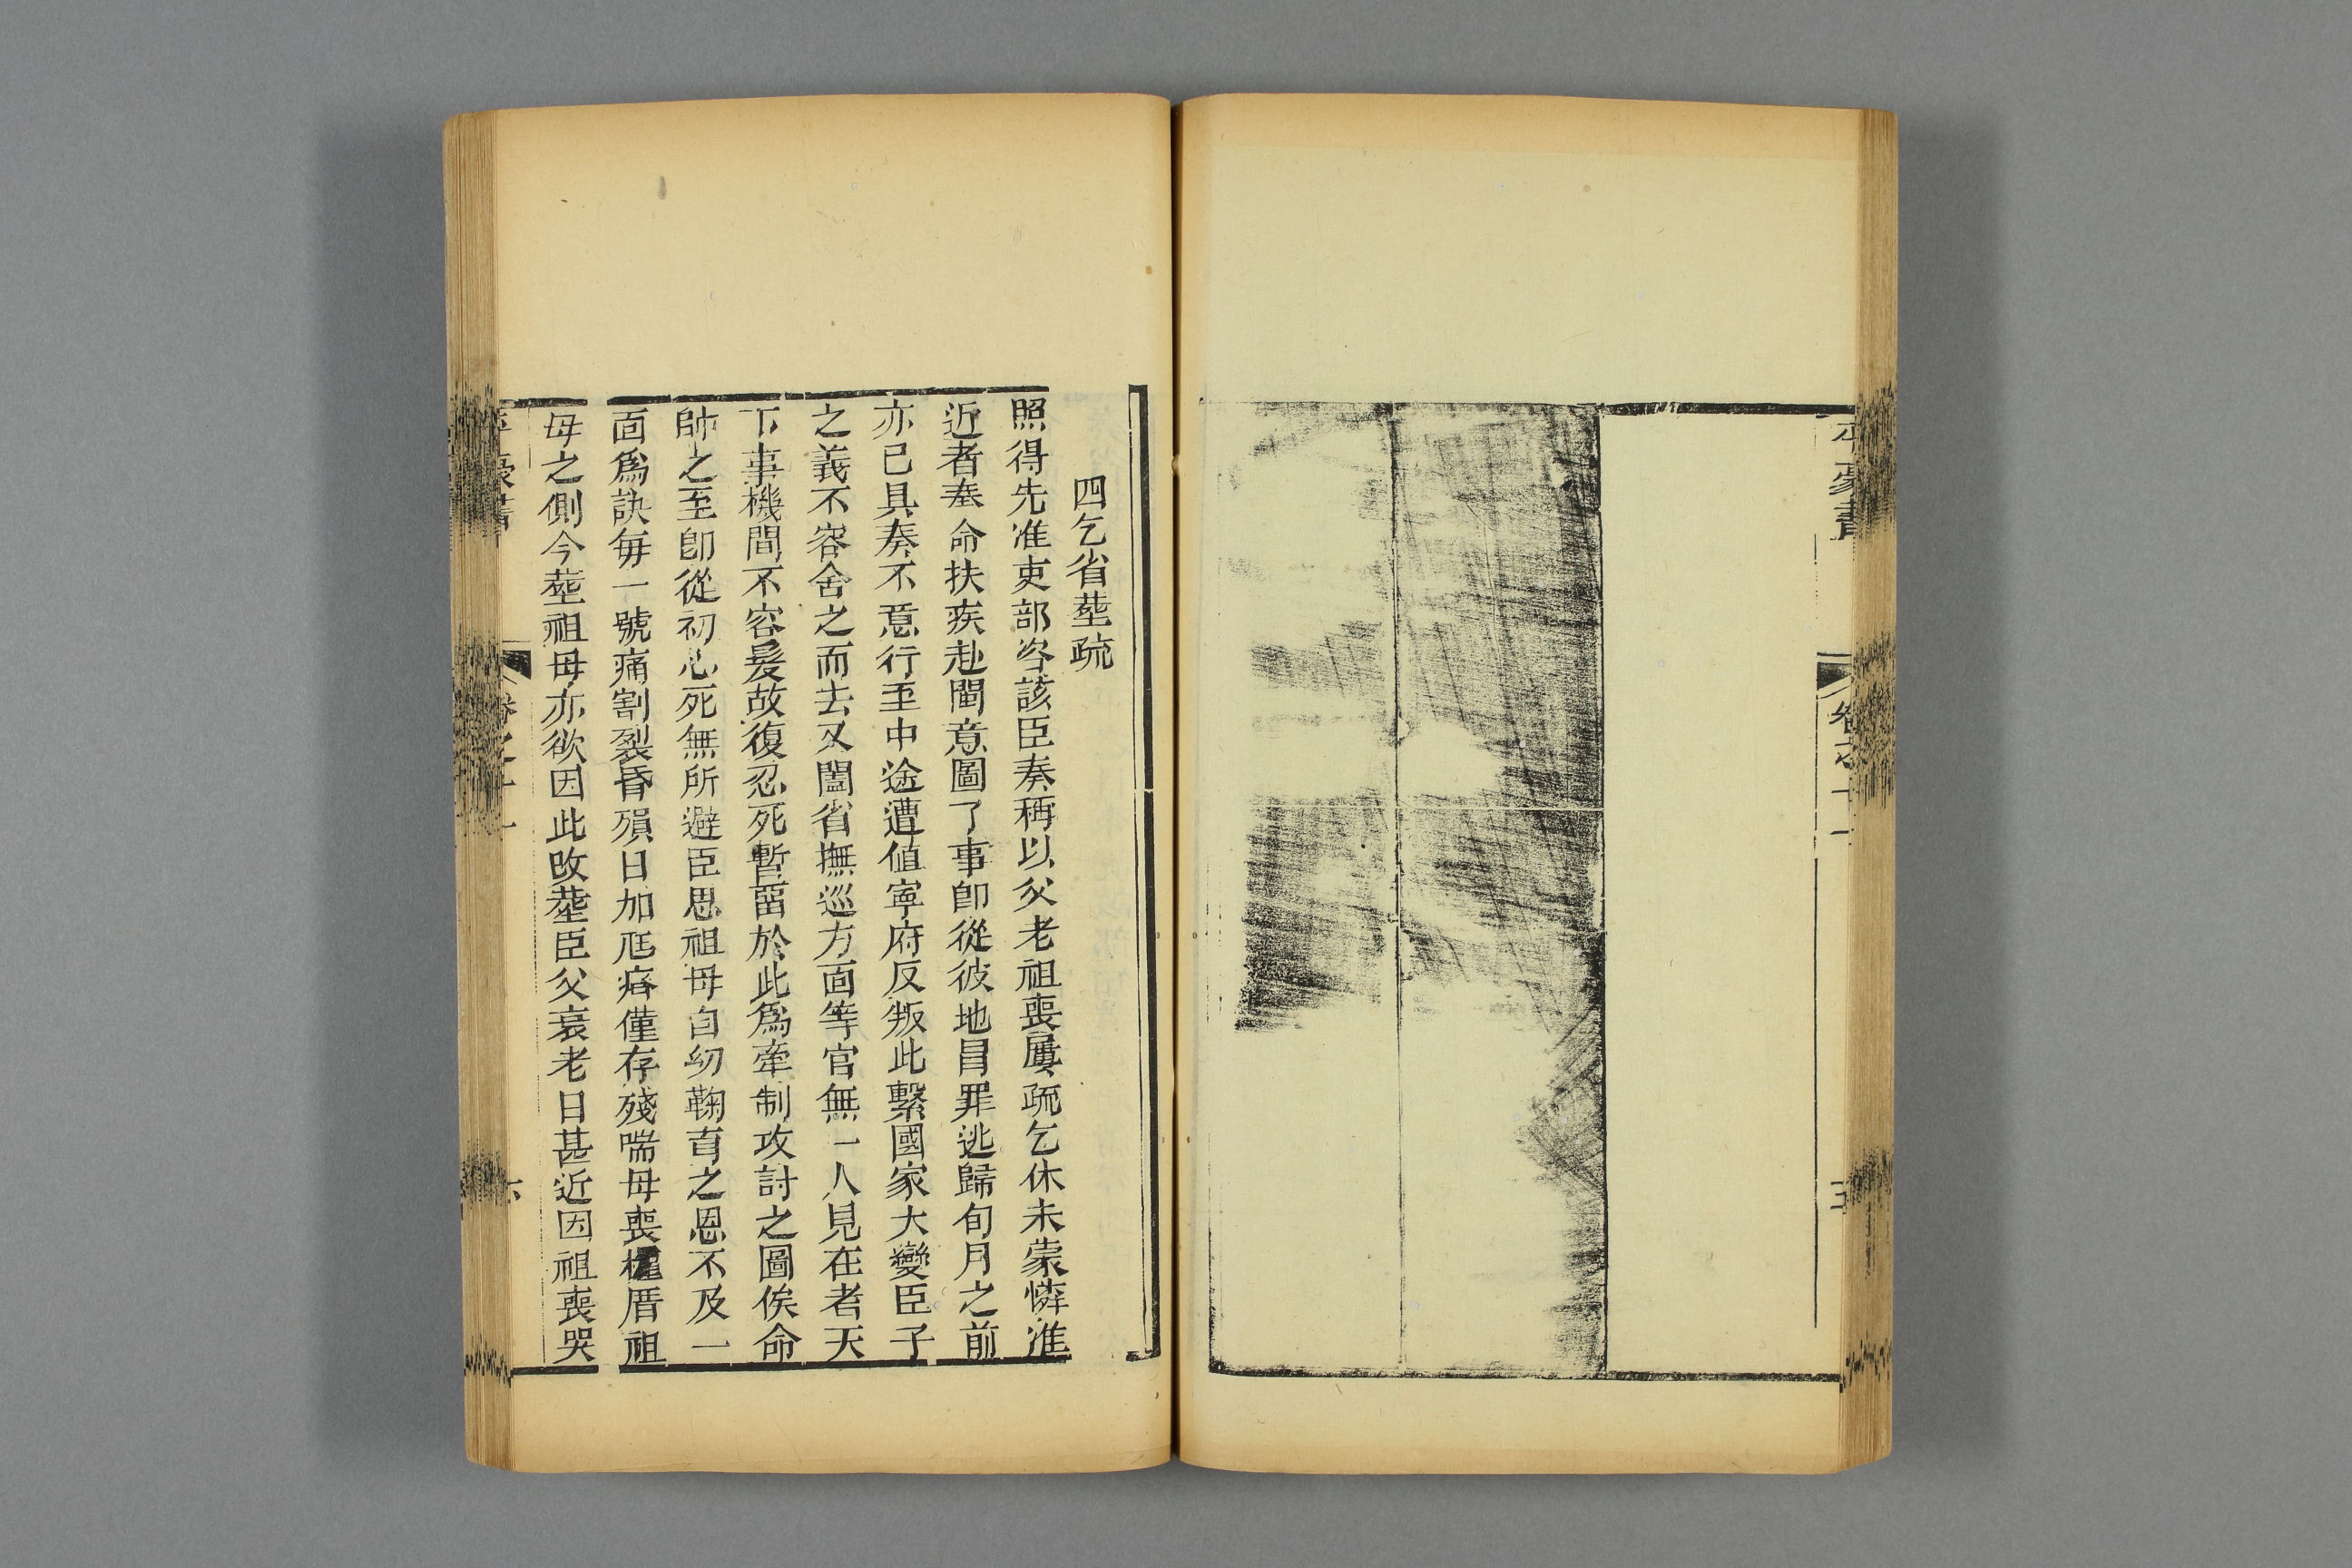 卷之十一
五
四乞省塟疏
照得先准吏部咨該臣奏稱以父老祖喪屢疏乞休未蒙憐准
近者奉命扶疾赴閩意圖了事卽從彼地冒罪逃歸旬月之前
亦已具奏不意行至中途遭值寧府反叛此繫國家大變臣子
之義不容舍之而去又闔省撫巡方面等官無一人見在者天
下事機間不容髮故復忍死暫畱於此爲牽制攻討之圖俟命
帥之至卽從初心死無所避臣思祖母自幼鞠育之恩不及一
面爲訣每一號痛割裂昏殞日加尫瘠僅存殘喘母喪權厝祖
母之側今塟祖母亦欲因此改塟臣父衰老日甚近因祖喪哭
卷之十一
六